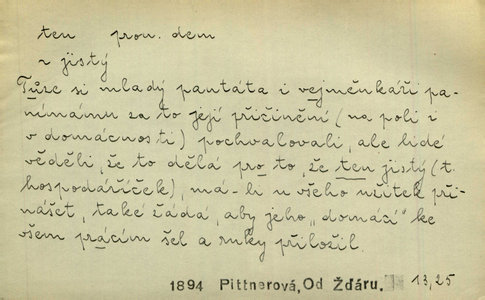 ten pron. dem
~ jistý
Tůze si mladý pantáta i vejměnkáři pa-
nímámu za to její přičinění (na poli i
v domácnosti) pochvalovali, ale lidé
věděli, že to dělá pro to, že ten jistý (t.
hospodáříček), má-li u všeho užitek při-
nášet, také žádá, aby jeho „domácí" ke
všem prácím šel a ruky přiložil.
1894 Pittnerová, Od Žďáru. 13,25